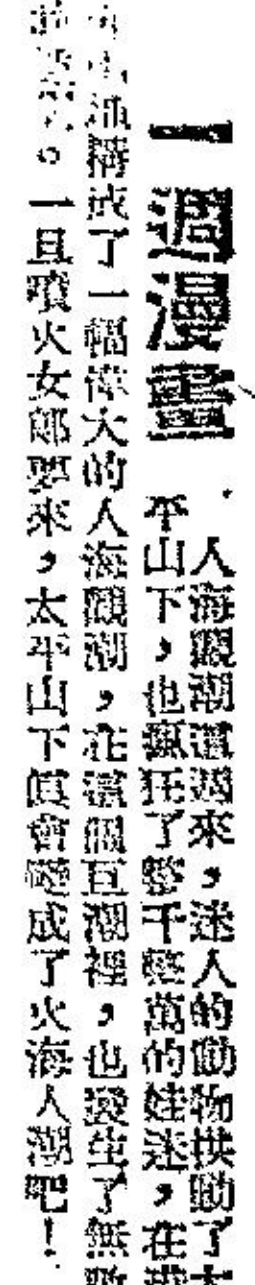 一週漫畫
人海觀潮這週來，迷人的動物拱動了太
平山下，也瘋狂了整千整萬的娃迷，在
構成了一幅偉大的人海觀潮，在這個巨潮裡，也發生了無數
。一旦噴火女郎要來，太平山下真會變成了火海人潮吧！